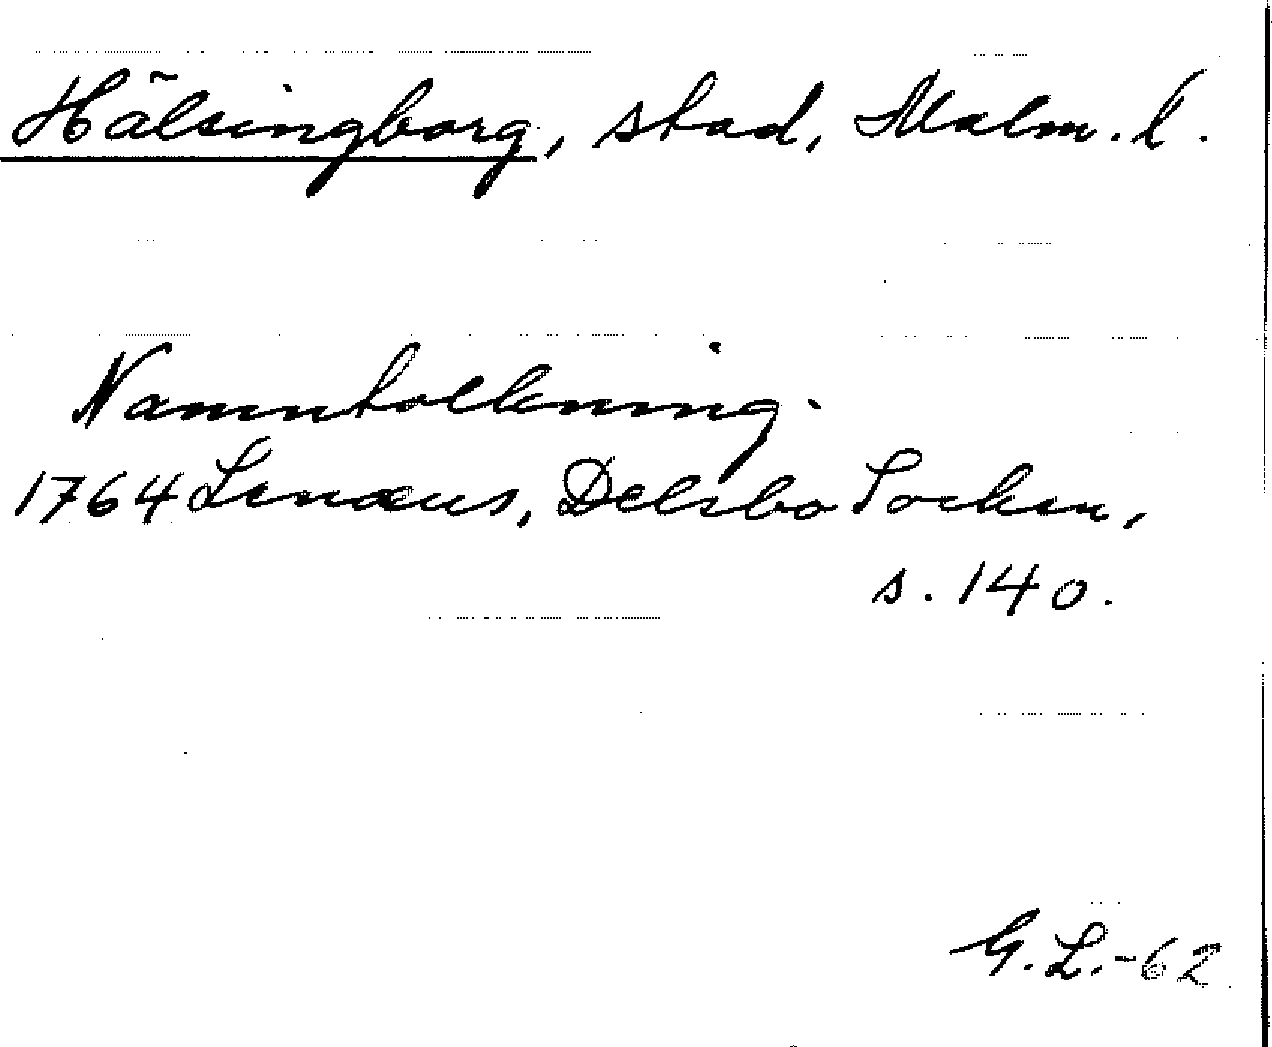 Hälsingborg, stad, Malm. l.
Namntolkning.
1764 Lenæus, Delsbo Socken,
s. 140.
G. L. -62